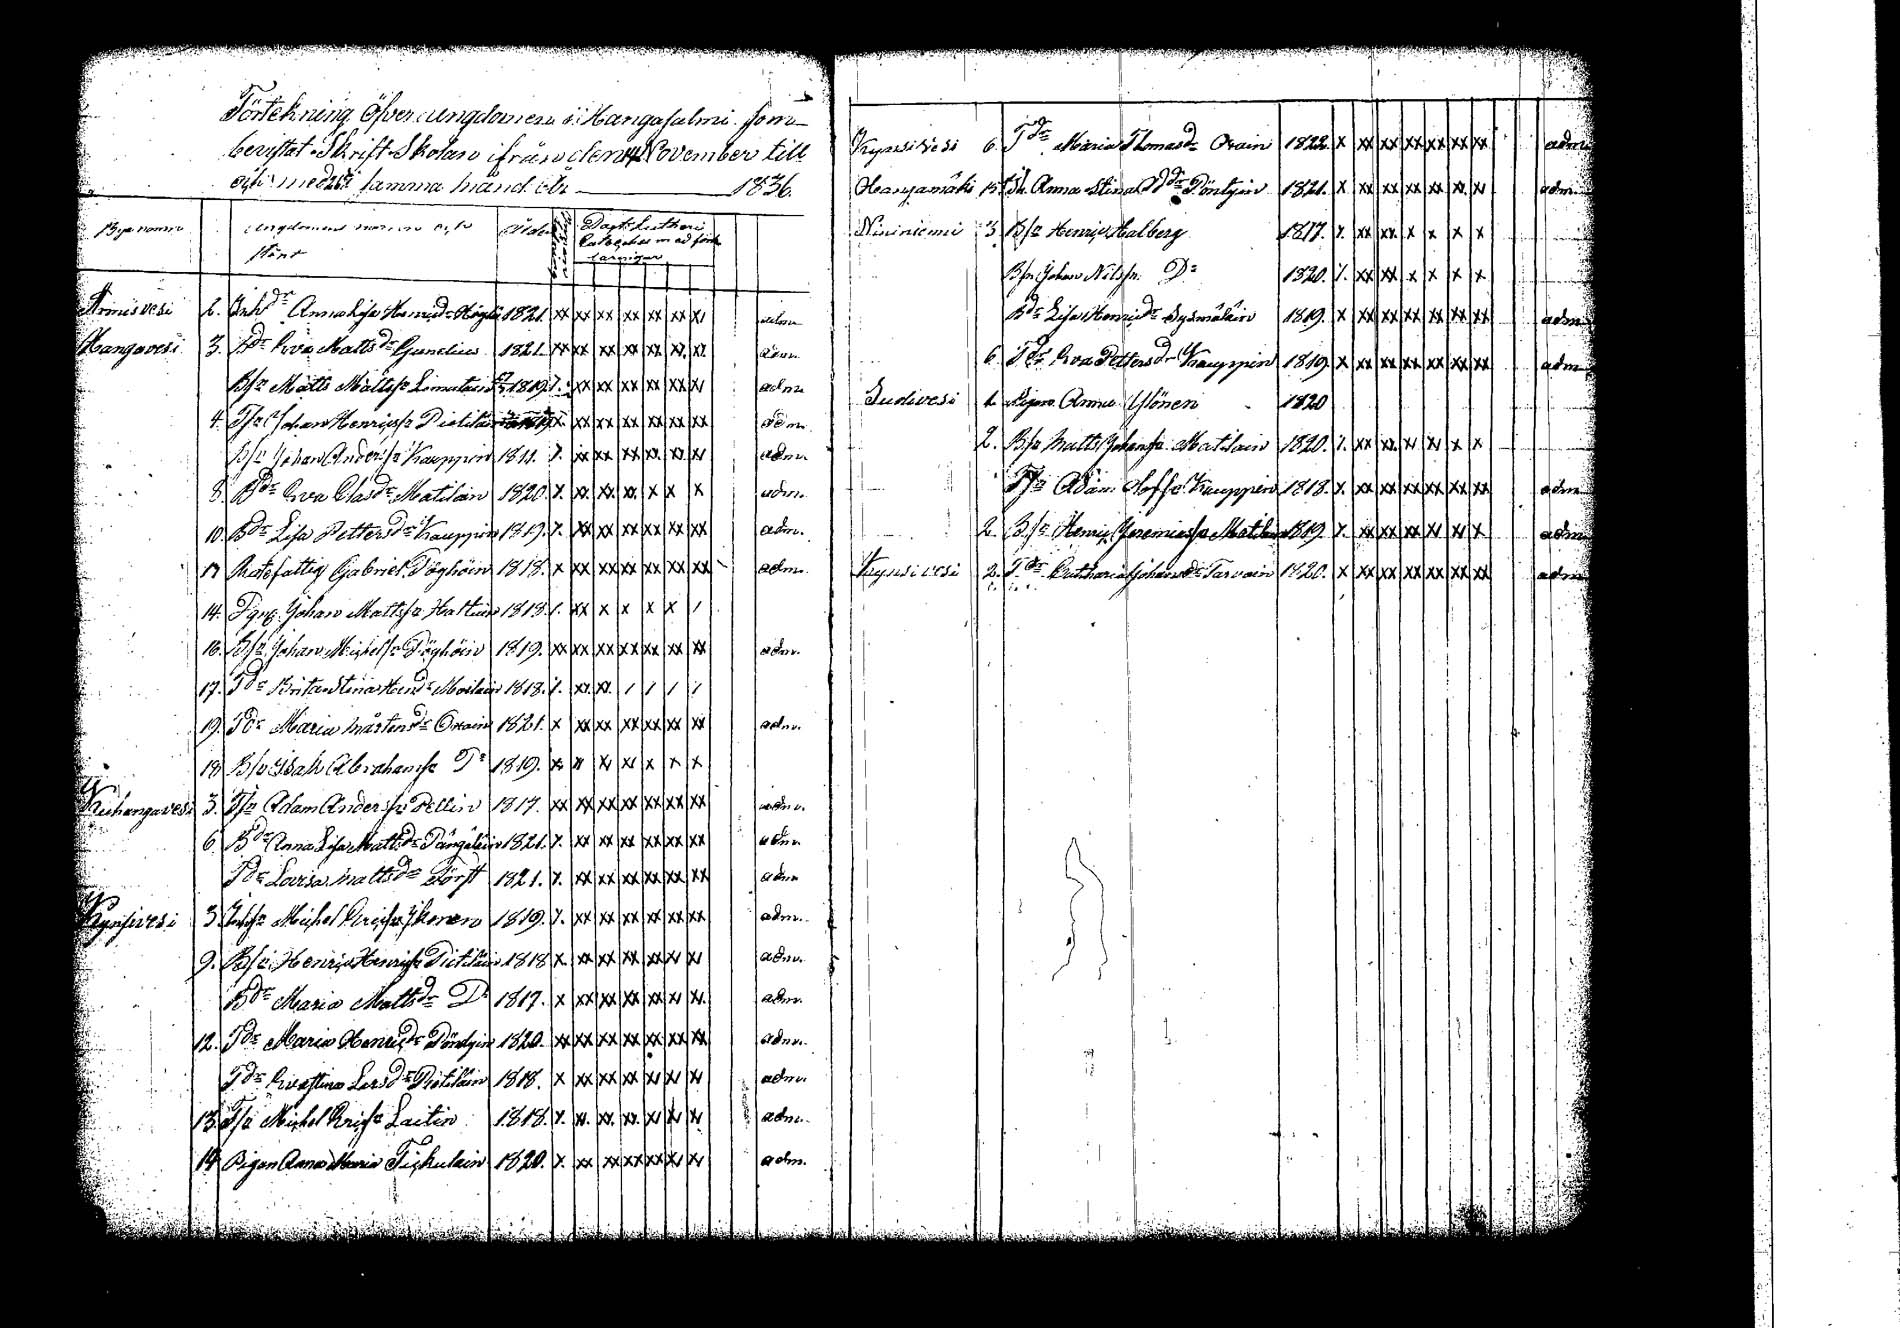 Förtekning öfver ungdomen i Hangasalmi som
bevistat Skrift Skolan ifrån den 14 November till
och med samma månad år 1836.
Bye namn ungdomens namn och stånd Ålder Dockt. Lutheri Cateches med förklaringar
Armisvesi 2. Inh dr Anna Lisa Henricsdr 1821. xx xx xx xx xx xi adm.
Hangavesi 3. Eva Mattsdr Gunelius 1821. xx xx xx xx xx xx. adm.
Bsn Matts Mattssn Limatain 1819. x. xx xx xx xx xx xi adm
4. Tsn Johan Henricssn Pietiläin x. xx xx xx xx xx xx adm.
Bsn Johan Anderssn Kauppin 1811. x. xx xx xx xx. xx xi adm.
8. Bdr Eva Olasdr Matilain 1820. x. xx. xx. xx. x x x adm.
10. Bdr Lisa Pettersdr Kauppin 1819. x. xx xx xx xx xx xx adm.
Rotefattig Gabriel Pöyhöin 1818. x xx xx xx xx xx xx adm.
14. Johan Mattssn Hattuin 1818. 1. xx x x x x 1
16. Bsn Johan Michelssn Pöyhöin 1819. xx xx xx xx xx xx xx adm.
17. Tdr Brita Stina Moilain 1818. 1. xx. xx. 1 1 1 1
19. Tdr Maria Mårtensdr Orain 1821. x xx xx xx xx xx xx adm.
18 Bsn Isak Abrahamssn Do 1819. x. xi xi x x x
Kuhangavesi 3. Tsn Adam Anderssn Pellin 1817. xx xx xx xx xx xx xx adm.
6 Bdr Anna Lisa Mattsdr 1821. x. xx xx xx xx xx xx adm
Tdr Lovisa Mattsdr Först 1821. x. xx xx xx xx xx xx adm
Kynsivesi 3 Michel Ericssn Ikonen 1819. x. xx xx xx xx xx xx adm.
9. Bsn Henric Henricssn Pietiläin 1818 x. xx xx xx xx xi xi adm.
Bdr Maria Mattsdr Do 1817. x xx xx xx xx xi xi. adm.
12. Tdr Maria Henricsdr Pöntyin 1820. xx xx xx xx xx xx xx adm.
Tdr Eva Stina Larsdr Pietiläin 1818. x xx xx xx xi xi xi adm.
13. Tsn Michel Ericssn Laitin 1818. x. xi. xx. xx. xi xi xi adm.
14 Pigan Anna Maria Tickulain 1820. x. xx xx xx xx xi xi adm.
Kynsivesi 6. Tdr Maria Thomasdr Orain 1822. x xx xx xx xx xx xx adm
Hanyamäki 15 Anna Stina Pöntyin 1821. x xx xx xx xx xx. xi adm
Niiniemi 3 Bsn Henric Halberg 1817. x. xx xx. x x x x
Bsn Johan Nilssn Do 1820. x. xx xx x x x x
Bdr Lisa Henricsdr Sysmäläin 1819. x xx xx xx xx xx xx adm
6. Tdr Eva Pettersdr Kauppin 1819. x xx xx xx xx xx xx adm
Sudivesi 1. Pigan Anna Ylönen 1820
2. Bsn Matts Johanssn Matilain 1820. x. xx xx. xi xi x x
Tsn Adam Olofssn Kauppin 1818. x. xx xx xx xx xx xx adm
2. Bsn Henric Jeremiassn Matilain 1819. x. xx xx xx xi xi x adm
Kynsivesi 2. Tdr Catharina Johansdr Tarvain 1820. x xx xx xx xx xx xx adm